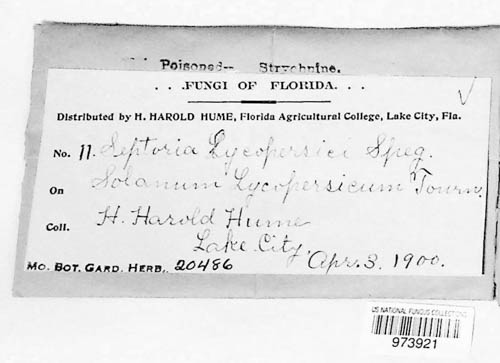 Poisoned-- Strychnine.
. . .FUNGI OF FLORIDA. . .
Distributed by H. HAROLD HUME, Florida Agricultural College, Lake City, Fla.
No. 11. Septoria Lycopersici Speg.
On Solanum Lycopersicum Tourn.
Coll. H. Harold Hume
Lake City,
Apr. 3. 1900.
MO. BOT. GARD. HERB. 20486
US NATIONAL FUNGUS COLLECTIONS
973921